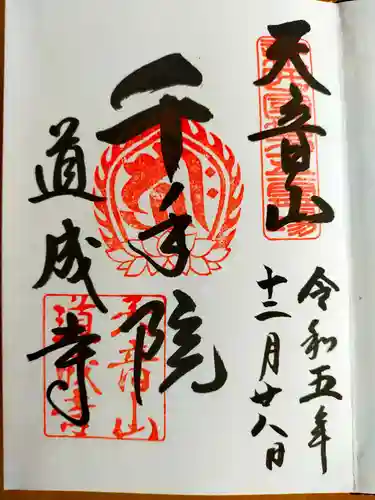 天音山
令和五年
十二月廿八日
千手院
道成寺
天音山
道成寺